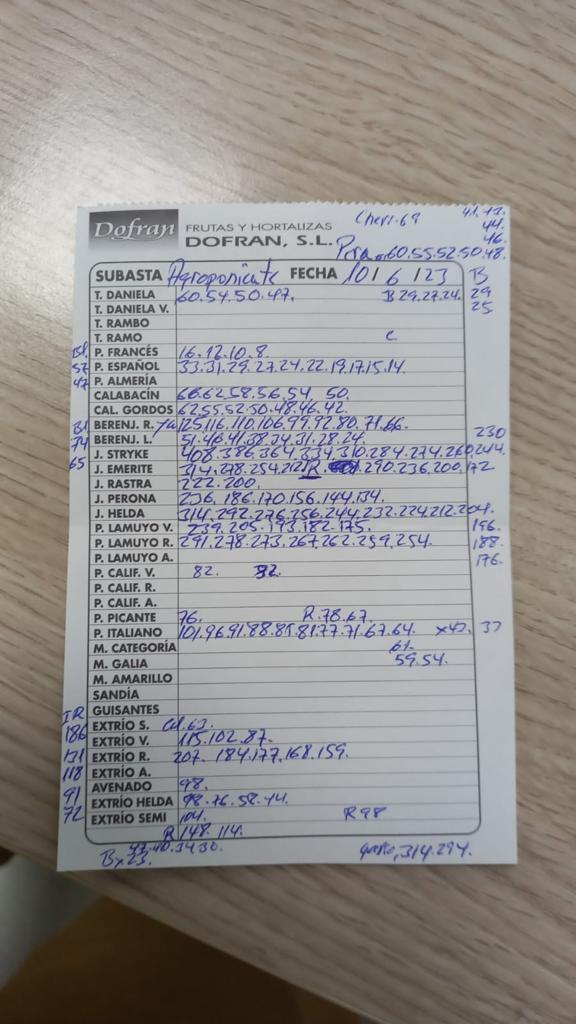 Cheri.69
44.
46.
Dofran FRUTAS Y HORTALIZAS
DOFRAN, S.L.
60.55.52.50.48.
SUBASTA Agroponiente FECHA 10/6/23 B
T. DANIELA 60.54.50.47. B 29.27.24. 29
T. DANIELA V. 25
T. RAMBO
T. RAMO C
P. FRANCÉS 16.12.10.8.
57 P. ESPAÑOL 33.31.29.27.24.22.19.17.15.14.
47 P. ALMERÍA
CALABACÍN 66.62.58.56.54. 50.
CAL. GORDOS 62.55.52.50.48.46.42.
BERENJ. R. 125.116.110.106.99.92.80.71.66.
74 BERENJ. L. 51.46.41.38.34.31.28.24. 230
65 J. STRYKE 408.386.364.334.310.284.274.260.244.
J. EMERITE 314.278.254.212 R. 290.236.200.172
J. RASTRA 222.200.
J. PERONA 236.186.170.156.144.134.
J. HELDA 314.292.276.256.244.232.224.212.204.
P. LAMUYO V. 239.205.193.182.175. 196.
P. LAMUYO R. 291.278.273.267.262.259.254. 188.
P. LAMUYO A. 176.
P. CALIF. V. 82. 92.
P. CALIF. R.
P. CALIF. A.
P. PICANTE 76. R.78.67.
P. ITALIANO 101.96.91.88.85.81.77.71.67.64. x47. 37
M. CATEGORÍA 61.
M. GALIA 59.54.
M. AMARILLO
SANDÍA
GUISANTES
IR EXTRÍO S. Cal.63.
186 EXTRÍO V. 115.102.87.
131 EXTRÍO R. 207. 184.177.168.159.
118 EXTRÍO A.
91 AVENADO 98.
72 EXTRÍO HELDA 98.76.58.44.
EXTRÍO SEMI 104. R98
R 148.114.
47.40.34.30.
Bx23. 314.294.